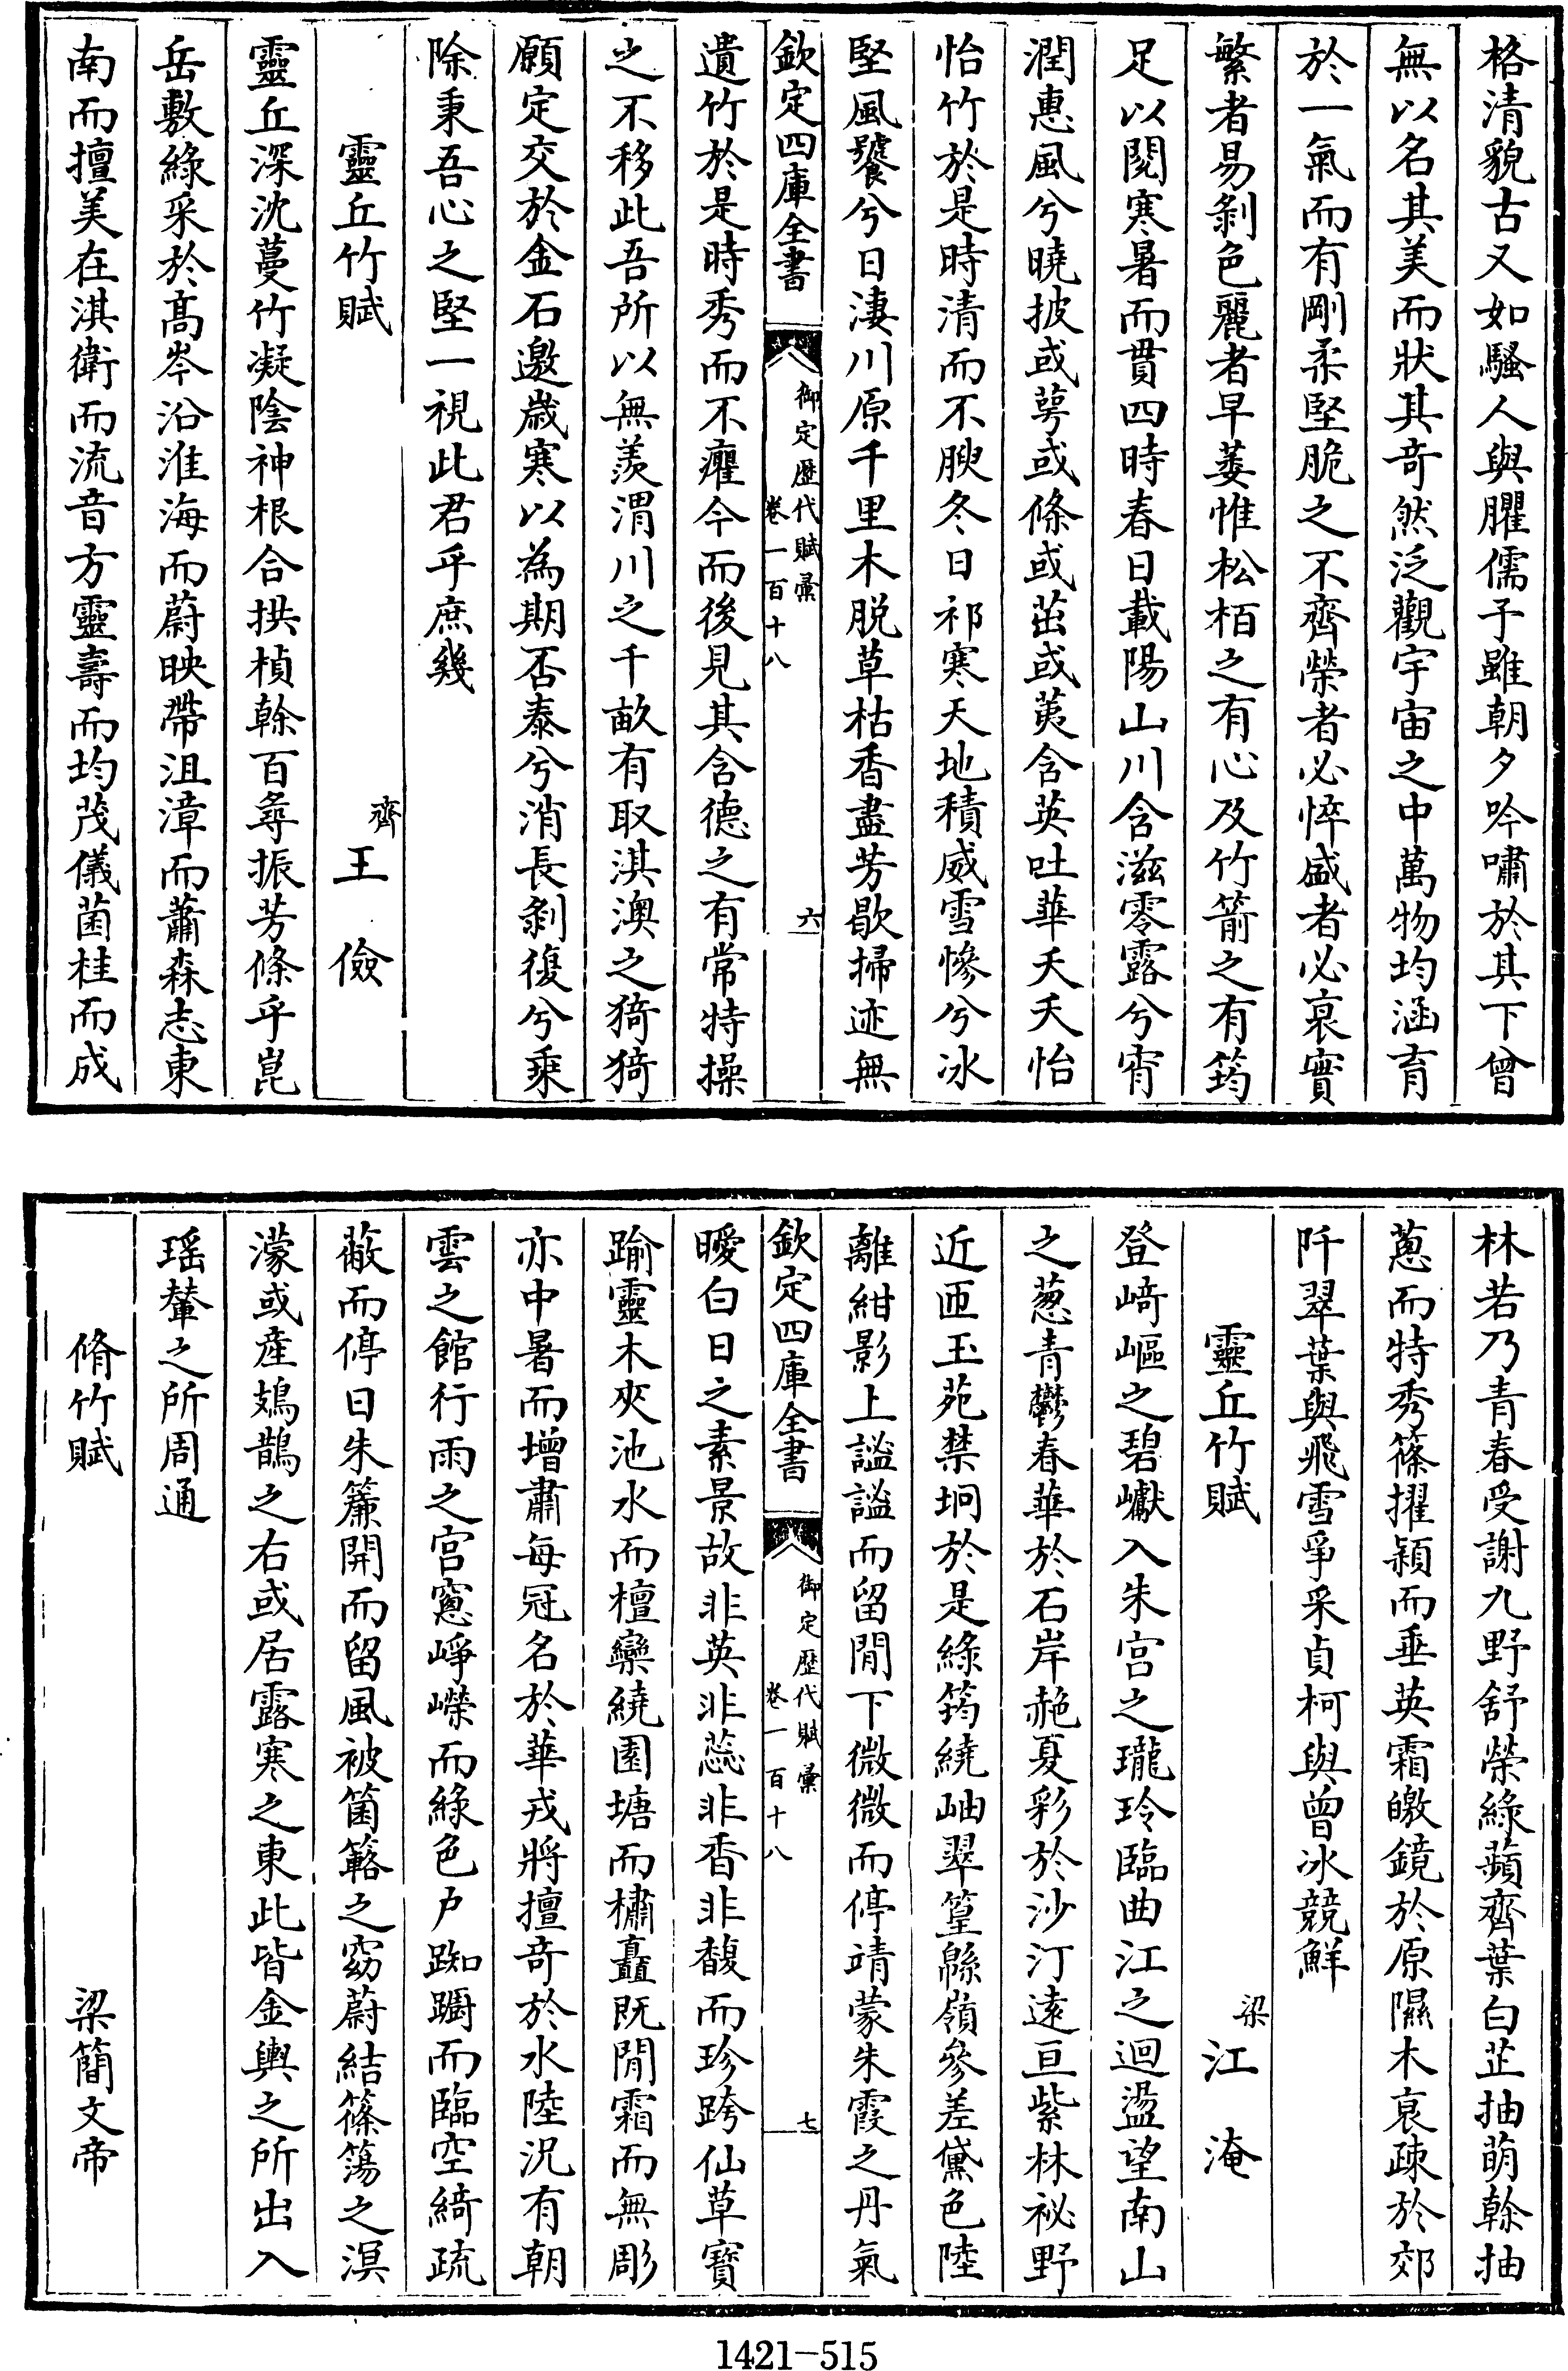 格清貌古又如騷人與臞儒予雖朝夕吟嘯於其下曾
無以名其美而狀其奇然泛觀宇宙之中萬物均涵育
於一氣而有剛柔堅脆之不齊榮者必悴盛者必衰實
繁者易剝色麗者早萎惟松栢之有心及竹箭之有筠
足以閱寒暑而貫四時春日載陽山川含滋零露兮宵
潤惠風兮曉披或萼或條或茁或荑含英吐華夭夭怡
怡竹於是時清而不腴冬日祁寒天地積威雪慘兮冰
堅風饕兮日淒川原千里木脱草枯香盡芳歇掃迹無
欽定四庫全書
御定歴代賦彙
卷一百十八
六
遺竹於是時秀而不癯今而後見其含德之有常特操
之不移此吾所以無羨渭川之千畝有取淇澳之猗猗
願定交於金石邀歲寒以為期否泰兮消長剝復兮乘
除秉吾心之堅一視此君乎庶幾
靈丘竹賦
齊王儉
靈丘深沈蔓竹凝陰神根合拱楨榦百尋振芳條乎崑
岳敷綠采於髙岑沿淮海而蔚映帶沮漳而蕭森志東
南而擅美在淇衛而流音方靈壽而均茂儀菌桂而成
林若乃青春受謝九野舒榮綠蘋齊葉白芷抽萌榦抽
蔥而特秀篠擢穎而垂英霜皦鏡於原隰木衰疎於郊
阡翠葉與飛雪爭采貞柯與曾冰競鮮
靈丘竹賦
梁江淹
登崎嶇之碧巘入朱宫之瓏玲臨曲江之迴盪望南山
之葱青鬱春華於石岸赩夏彩於沙汀逺亘紫林祕野
近匝玉苑禁坰於是綠筠繞岫翠篁緜嶺參差黛色陸
離紺影上謐謐而留閒下微微而停靖蒙朱霞之丹氣
欽定四庫全書
御定歴代賦彙
卷一百十八
七
曖白日之素景故非英非蕊非香非馥而珍跨仙草寳
踰靈木夾池水而檀欒繞園塘而橚矗既閒霜而無彫
亦中暑而增肅每冠名於華戎將擅奇於水陸況有朝
雲之館行雨之宫窻崢嶸而綠色户踟躕而臨空綺疏
蔽而停日朱簾開而留風被箘簬之窈蔚結篠簜之溟
濛或産鳷鵲之右或居露寒之東此皆金輿之所出入
瑶輦之所周通
脩竹賦
梁簡文帝
1421-515